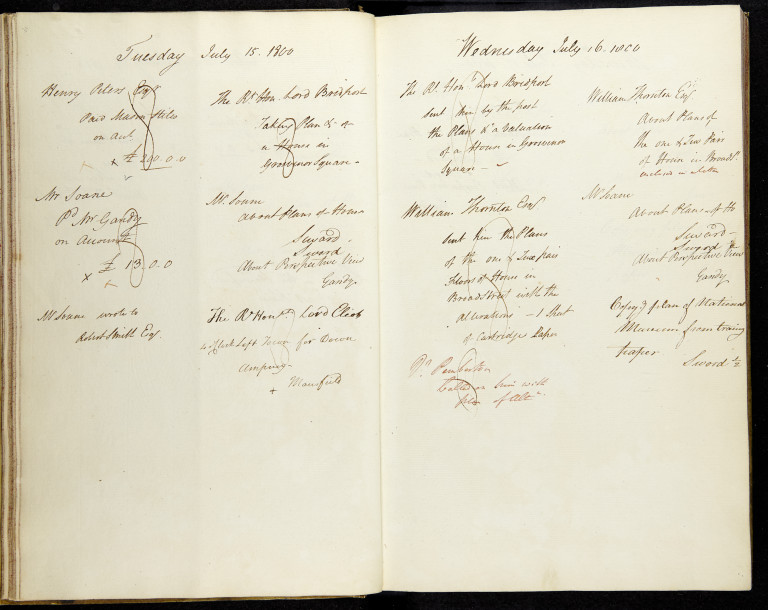 Tuesday July 15. 1800
Henry Peters Esqr
Paid Mason Stiles
on acct
x £200.0.0
Mr Soane
Pd Mr Gandy
on Account
x £13.0.0
Mr Soane wrote to
Robert Smith Esq.
The Rt Hon. Lord Bridport
Taking Plan &c of
a House in
Grosvenor Square -
Mr Soane
About Plans of House
Seward.
Sword
About Perspective View
Gandy.
The Rt Honble Lord Eliot
Clerk Left Town for Down
Ampney -
+ Mansfield
Wednesday July 16. 1800
The Rt Honble Lord Bridport
Sent him by the post
the Plans & a Valuation
of a House in Grosvenor
Square -
William Thornton Esq
Sent him the Plans
of the one & Two pair
Floors of House in
Broad Street with the
Alterations - 1 Sheet
of Cartridge Paper
Do Pemberton
Called on him with
plan of Altn.
William Thornton Esq
About Plans of
the one & Two Pair
of House in Broad St.
Mr Soane
About Plans of Ho
Seward -
Sword
About Perspective View
Gandy
Copyg plan of National
Museum from tracing
paper
Sword ½